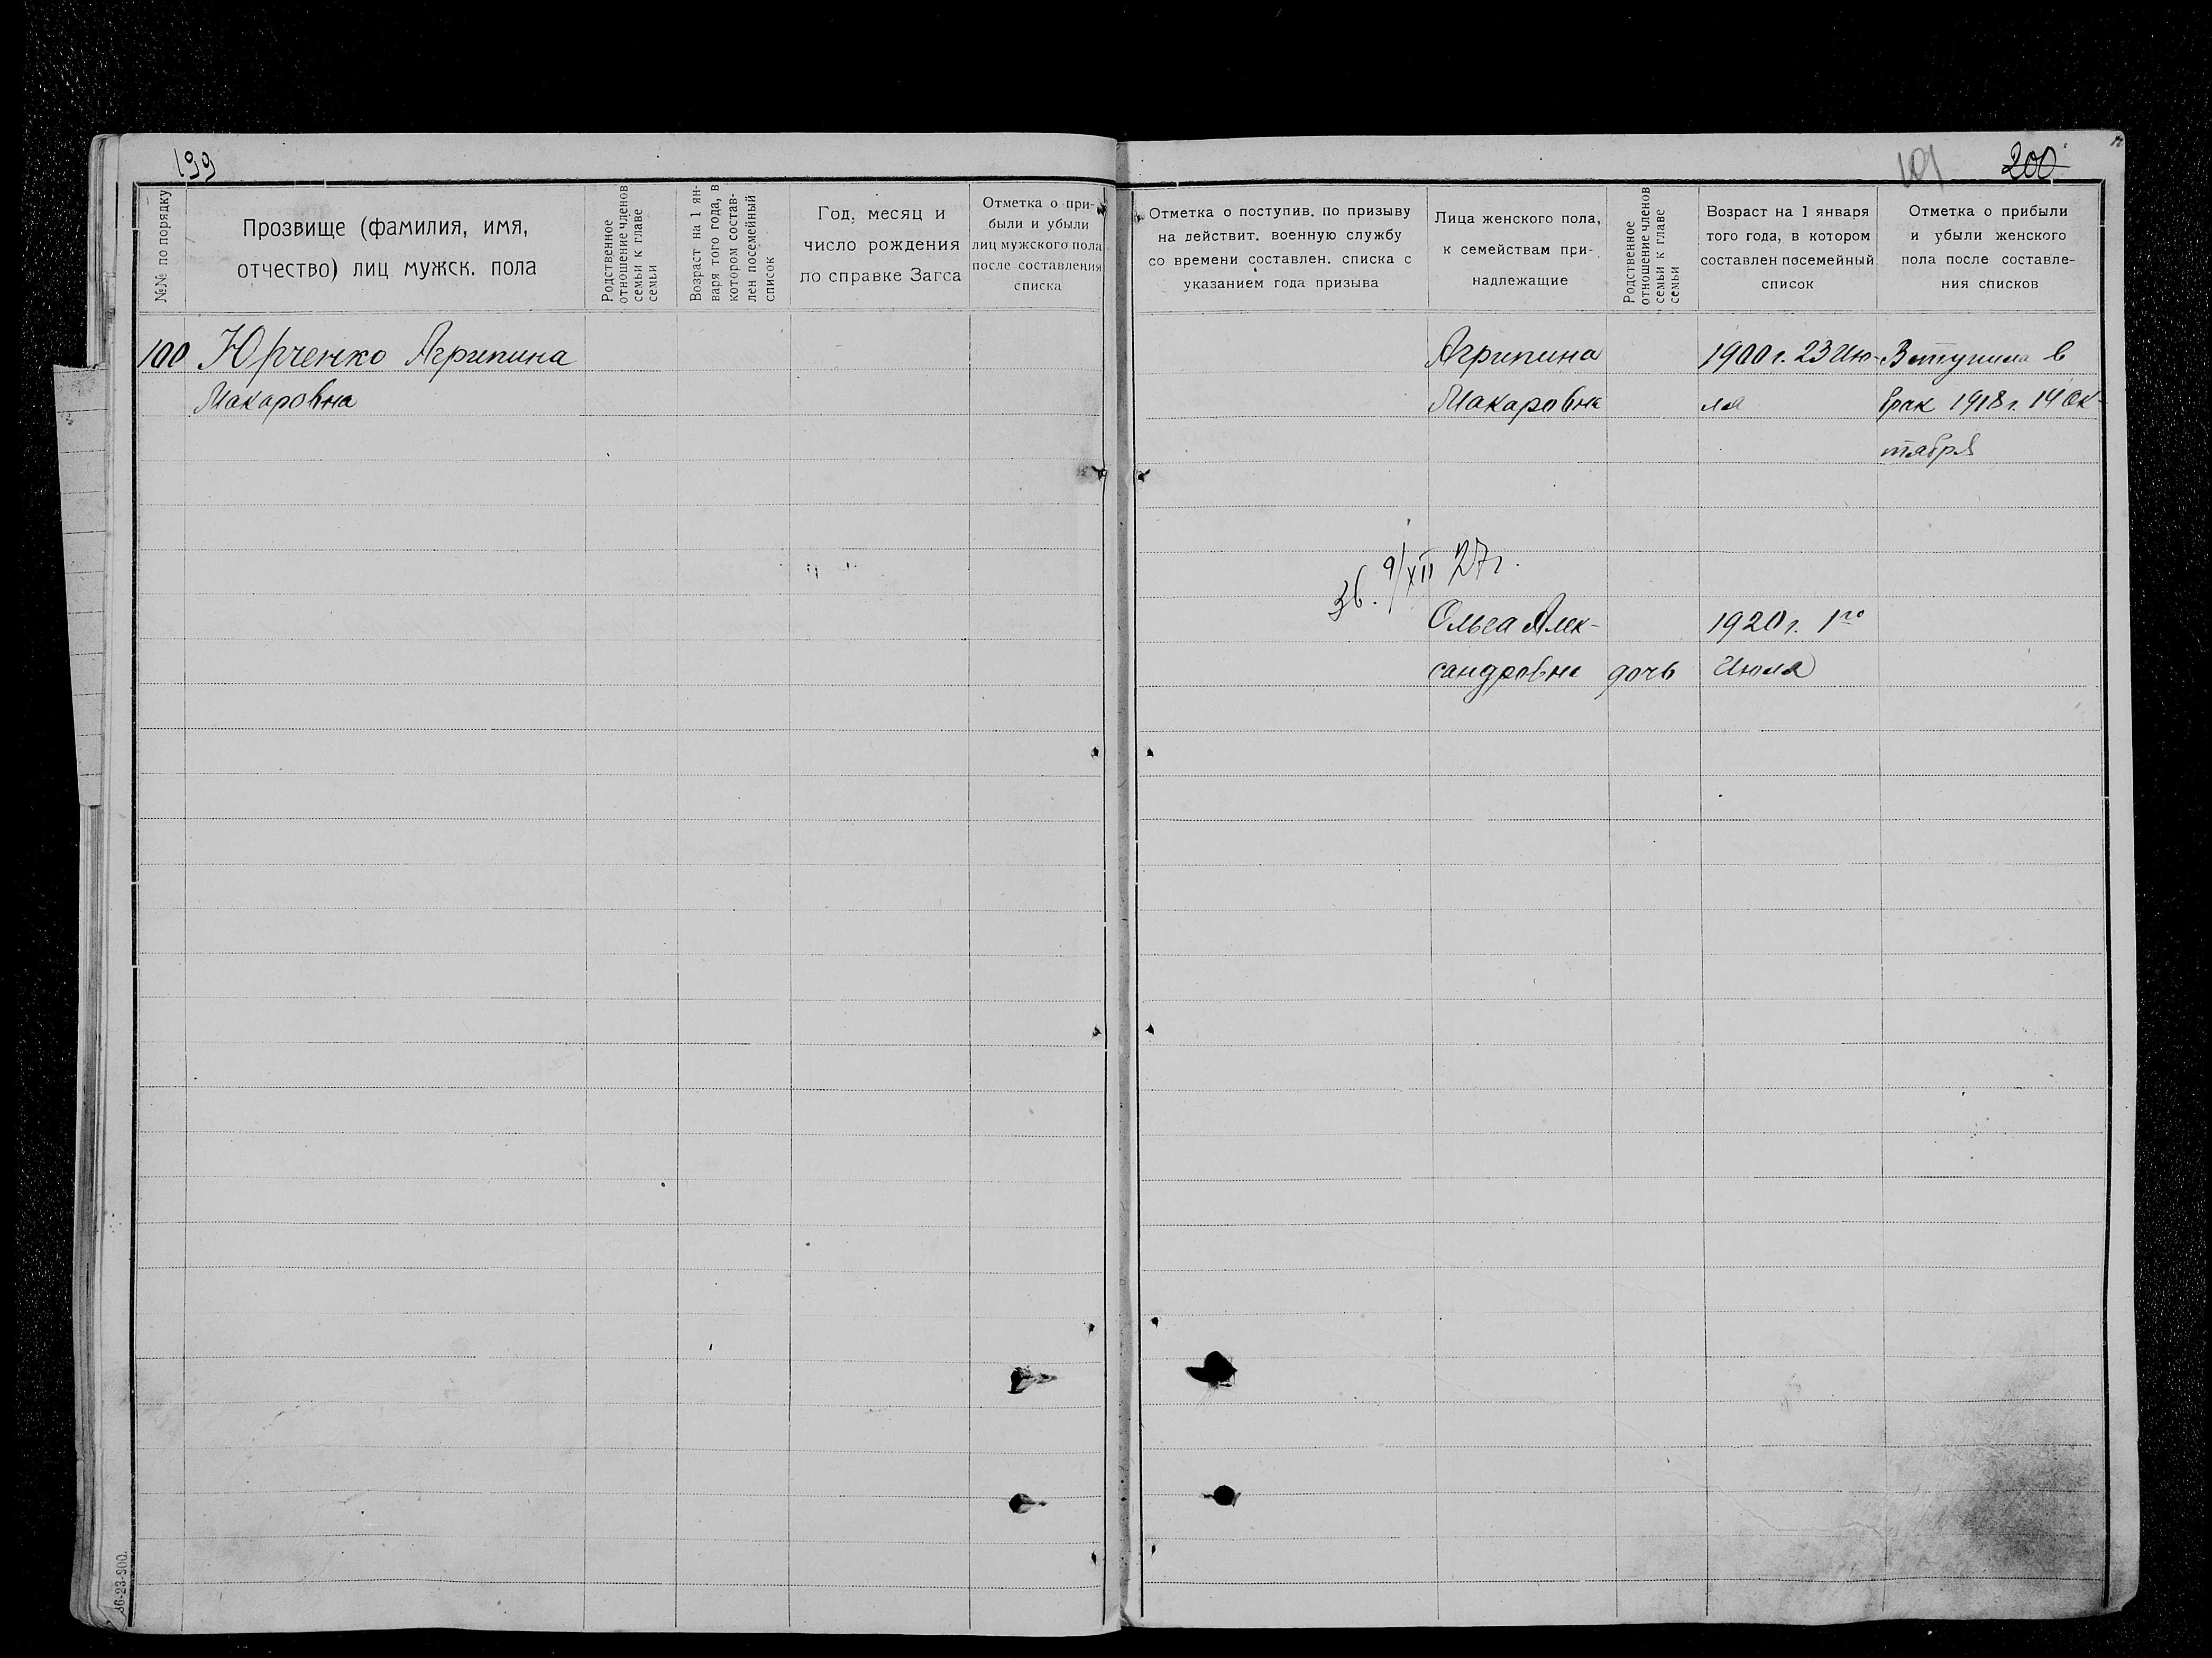 199
№№ по порядку
Прозвище (фамилия, имя,
отчество) лиц мужск. пола
Родственное
отношение членов
семьи к главе
семьи
Возраст на 1 ян-
варя того года, в
котором состав-
лен посемейный
список
Год, месяц и
число рождения
по справке Загса
Отметка о при-
были и убыли
лиц мужского пола
после составления
списка
100 Юрченко Агрипина
Макаровна
36-23-800.
101 200
Отметка о поступив. по призыву
на действит. военную службу
со времени составлен. списка с
указанием года призыва
Лица женского пола,
к семействам при-
надлежащие
Родственное
отношение членов
семьи к главе
семьи
Возраст на 1 января
того года, в котором
составлен посемейный
список
Отметка о прибыли
и убыли женского
пола после составле-
ния списков
Агрипина 1900 г. 23 Ию- Вступила в
Макаровна ля брак 1918 г. 14 Ок-
тября
9/XII 27 г.
Ольга Алек- 1920 г. 1го
сандровна дочь Июля